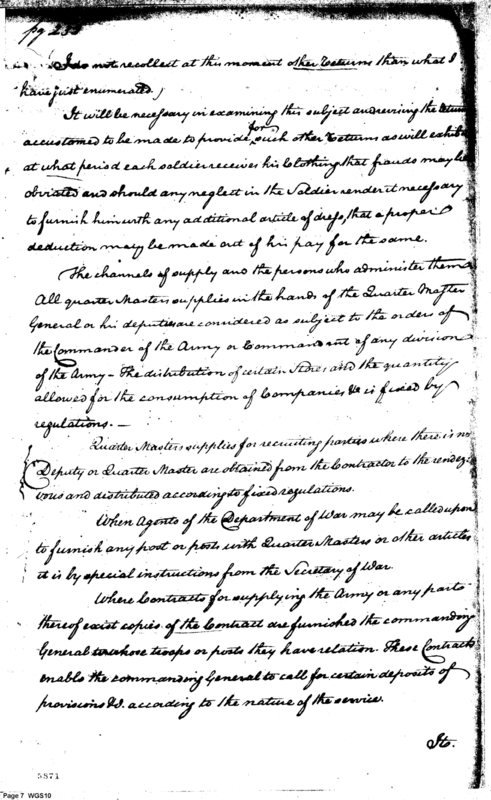 pg 233
I do not recollect at this moment other Returns than what I
have just enumerated.)
It will be necessary in examining this subject and revising the returns
accustomed to be made to provide for such other Returns as will exhibit
at what period each soldier receives his Clothing that frauds may be
obviated and should any neglect in the Soldier render it necessary
to furnish him with any additional article of dress, that a proper
deduction may be made out of his pay for the same.
The channels of supply and the persons who administer them
All quarter Masters supplies in the hands of the Quarter Master
General or his deputies are considered as subject to the orders of
the Commander of the Army or Commandant of any division
of the Army – The distribution of certain Stores and the quantity
allowed for the consumption of Companies &c is fixed by
regulations. –
Quarter Masters supplies for recruiting parties where there is no
Deputy or Quarter Master are obtained from the Contractor to the rendez-
vous and distributed according to fixed regulations.
When Agents of the Department of War may be called upon
to furnish any post or posts with Quarter Masters or other articles
it is by special instructions from the Secretary of War.
Where Contracts for supplying the Army or any parts
thereof exist copies of the Contract are furnished the commanding
General to whose troops or posts they have relation. These Contracts
enable the commanding General to call for certain deposits of
provisions &c. according to the nature of the service.
It.
5871
Page 7 WGS10